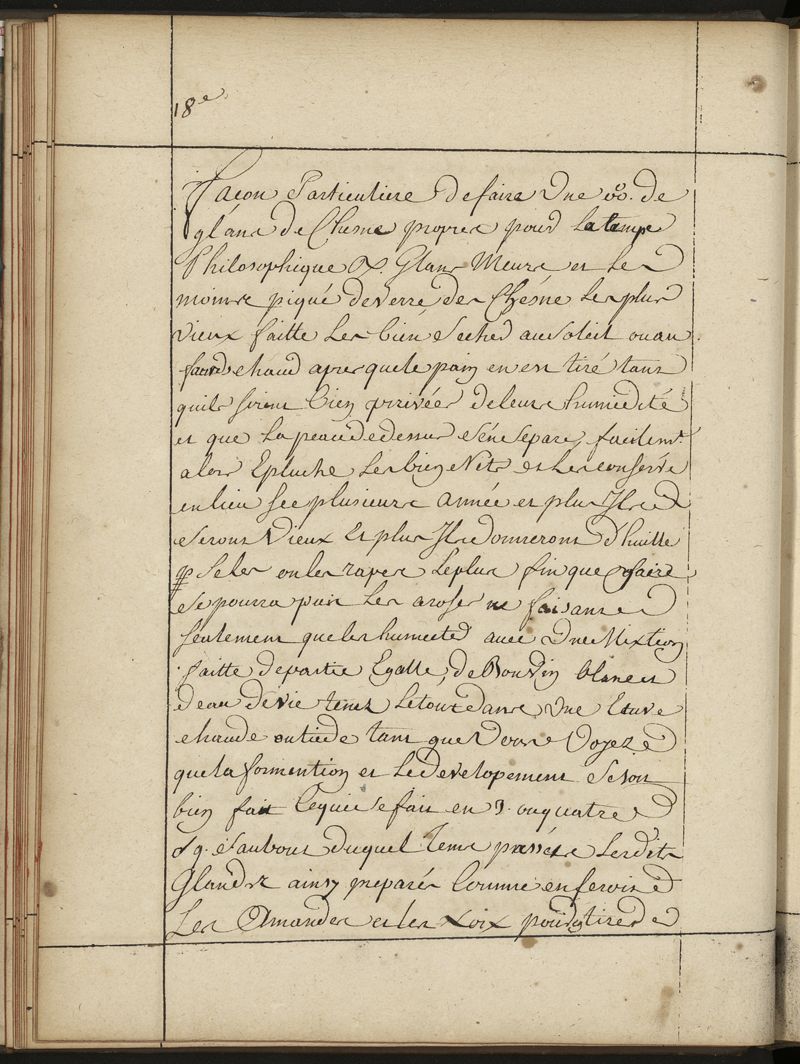 18e
Façon Particuliere de faire Une de
glans de Chesne propres pour La Lampe
Philosophique Glans Meurs et Les
moins piqué de verre des Chésne Les plus
vieux faitte Les bien Sechéd au Soleil ou au
four chaud apres que le pain en est tiré tant
quils Soient bien privées de leurs humidité
et que La peau de dessus S'en Separe facilemt
alors Epluche Les bien Nets et Les conserve
en lieu Sec plusieurs année et plus Ils
Seront Vieux Et plus Ils donneront d'huille
piles Les ou les rapes Le plus fin que faire
Se pourra puis Les aroser ne faisant
Seulement que les humecté avec Une Mixtion
faitte de partie Egalle de Bon Vin blanc et
d'eau de vie tenés Le tout dans Une Etuve
chaude ou tiede tant que Vous Voyez
que la formention et Le developement Se Soit
bien fait Ce qui Se fait en 3. ou quatre
Js. au bout duquel Tems passés Les dits
Glands ainsy preparés Comme en feroit
Les Amandes et les Noix pour tirer